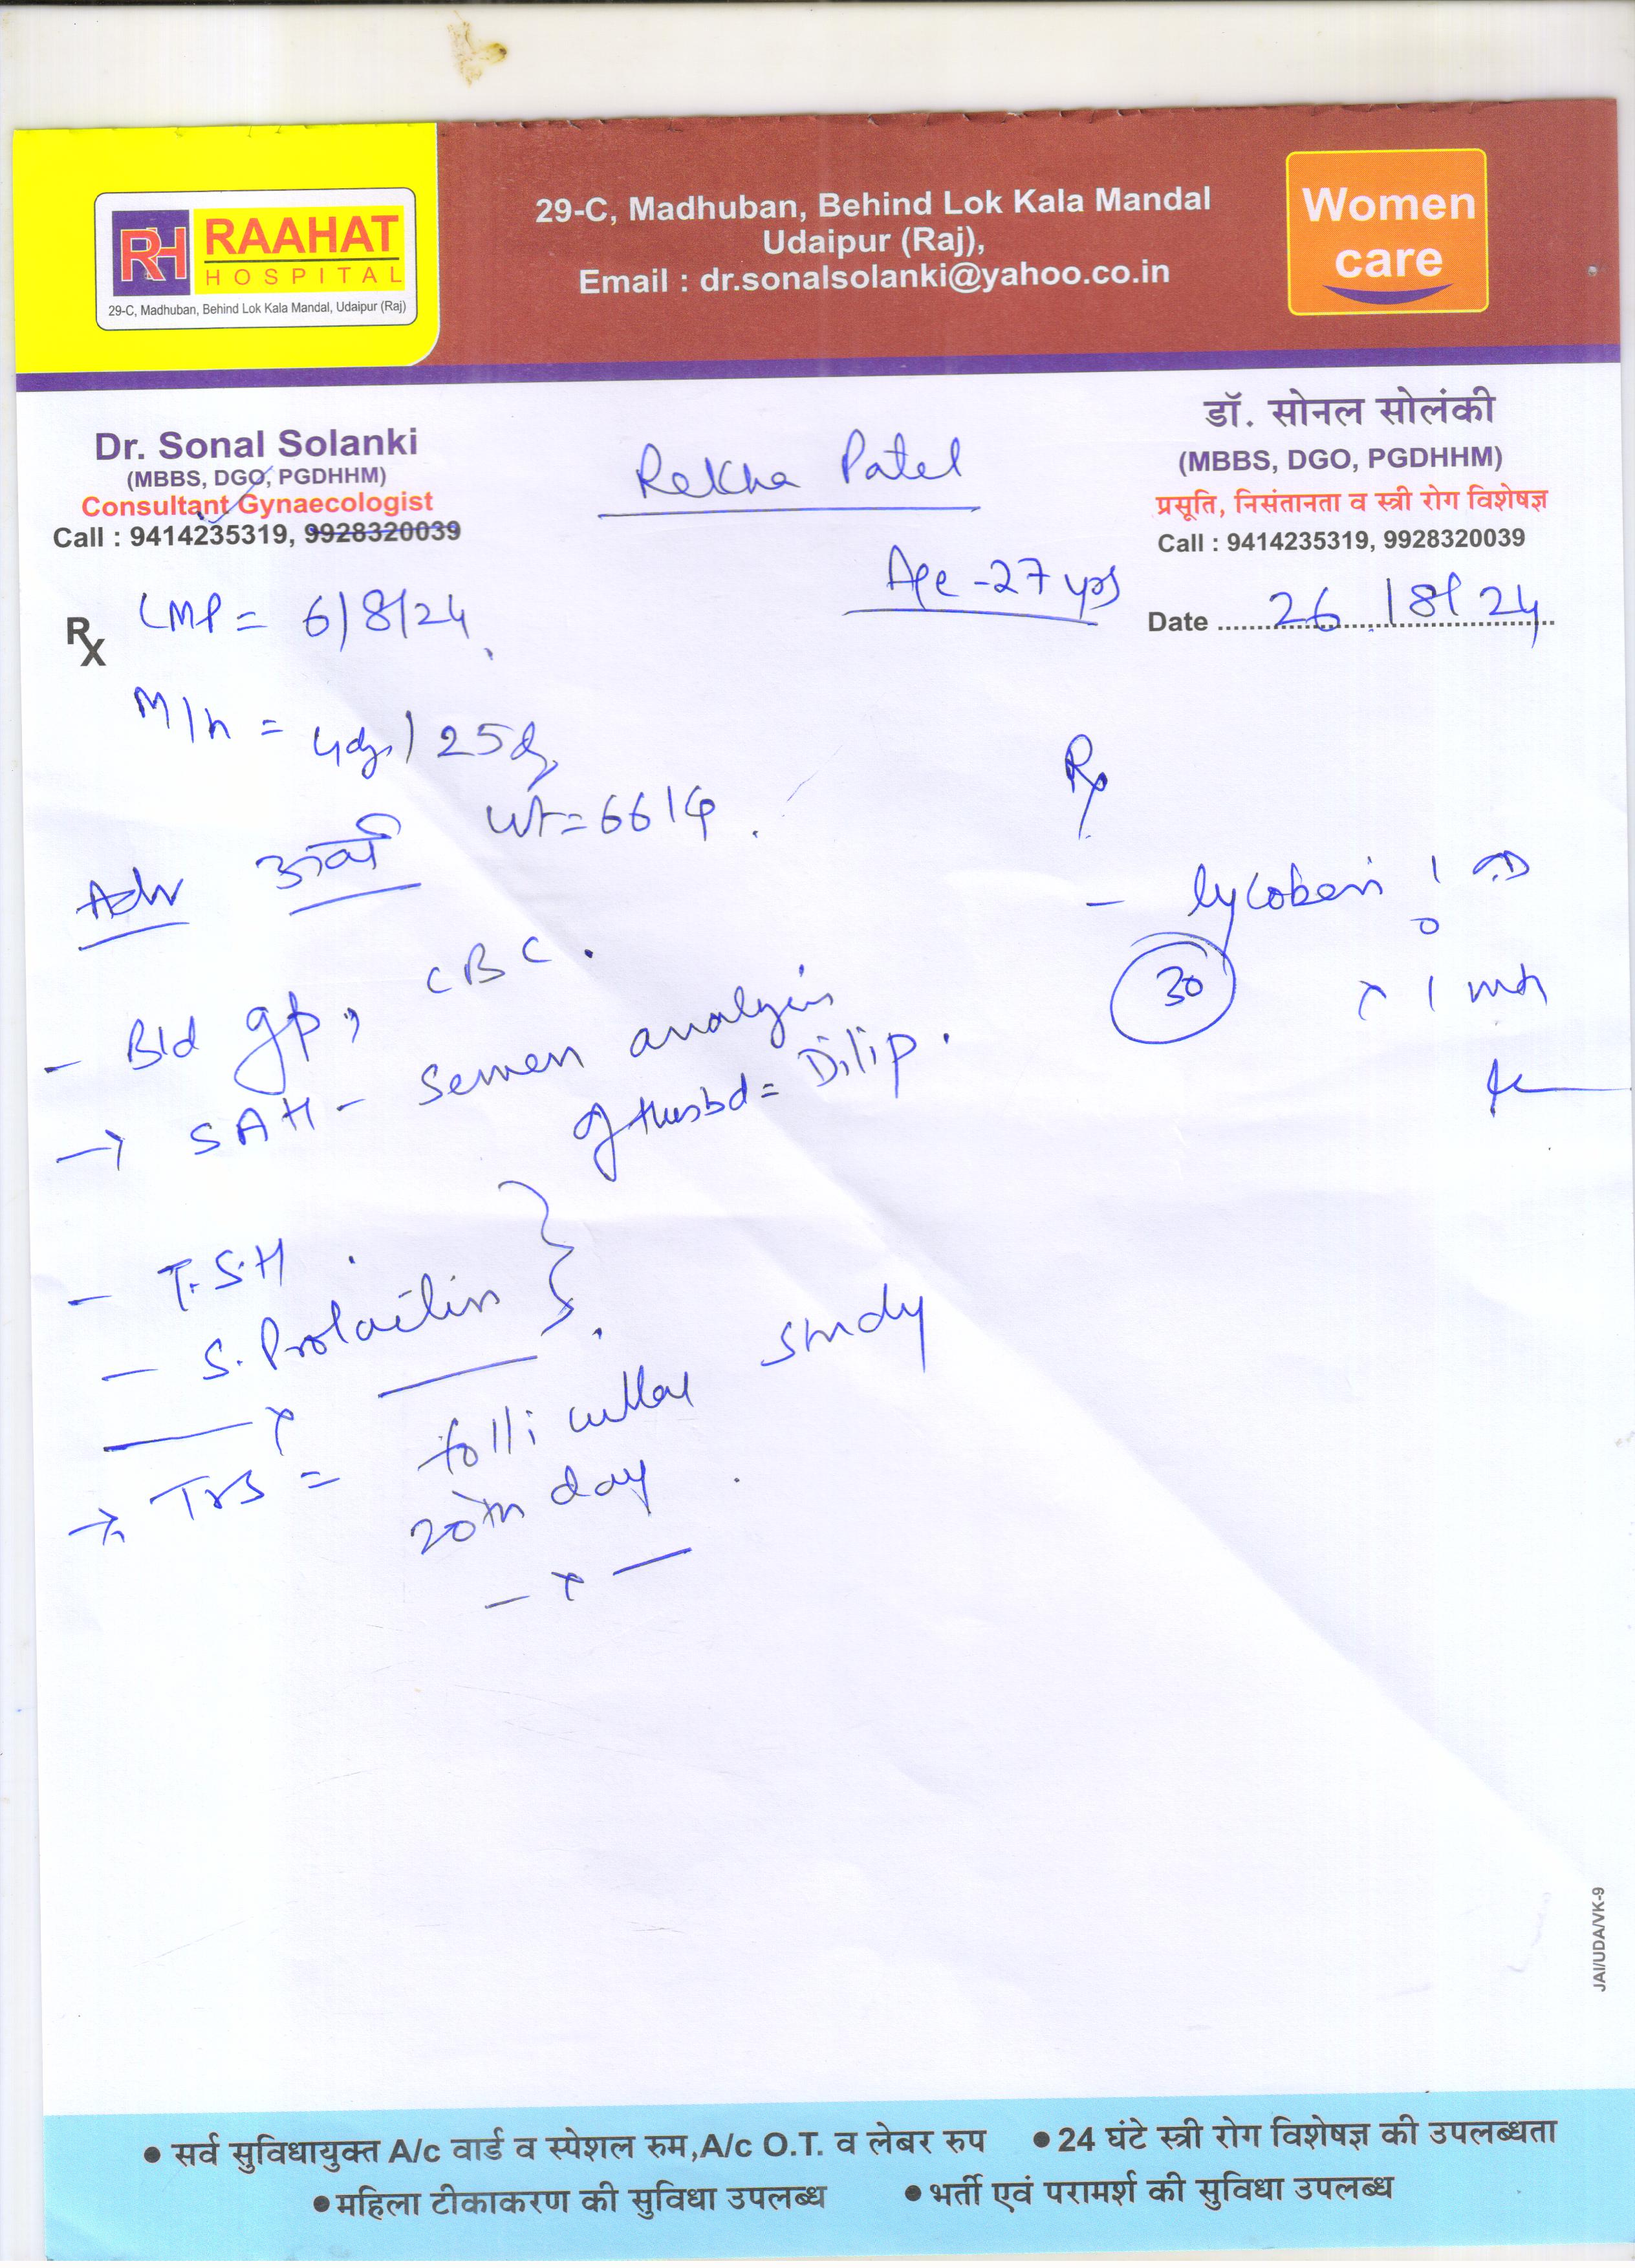 RH RAAHAT
HOSPITAL
29-C, Madhuban, Behind Lok Kala Mandal, Udaipur (Raj)
29-C, Madhuban, Behind Lok Kala Mandal
Udaipur (Raj),
Email : dr.sonalsolanki@yahoo.co.in
Women
care
Dr. Sonal Solanki
(MBBS, DGO, PGDHHM)
Consultant Gynaecologist
Call : 9414235319, 9928320039
Rekha Patel
Age - 27 yrs
डॉ. सोनल सोलंकी
(MBBS, DGO, PGDHHM)
प्रसूति, निसंतानता व स्त्री रोग विशेषज्ञ
Call : 9414235319, 9928320039
Date 26/8/24
Rx
LMP = 6/8/24
M/h = 4dys / 25d
wt = 66
Adv
- Bld gp, CBC.
→ SAH - Semen analysis
of Husbd = Dilip.
- T.S.H
- S. Prolactin
x
→ TVS = follicular study
20th day
- x -
Rx
- 1 OD
30
x 1 mth
JAI/UDA/VK-9
• सर्व सुविधायुक्त A/c वार्ड व स्पेशल रुम,A/c O.T. व लेबर रुप • 24 घंटे स्त्री रोग विशेषज्ञ की उपलब्धता
• महिला टीकाकरण की सुविधा उपलब्ध • भर्ती एवं परामर्श की सुविधा उपलब्ध